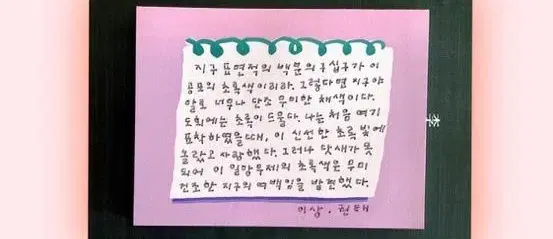 지구 표면적의 백분의 구십구가 이
공포의 초록색이리라. 그렇다면 지구야
말로 너무나 단조 무미한 채색이다.
도회에는 초록이 드물다. 나는 처음 여기
표착하였을 때, 이 신선한 초록 빛에
놀랐고 사랑했다. 그러나 닷새가 못
되어 이 일망무제의 초록색은 무미
건조한 지구의 여백임을 발견했다.
이상. 권태